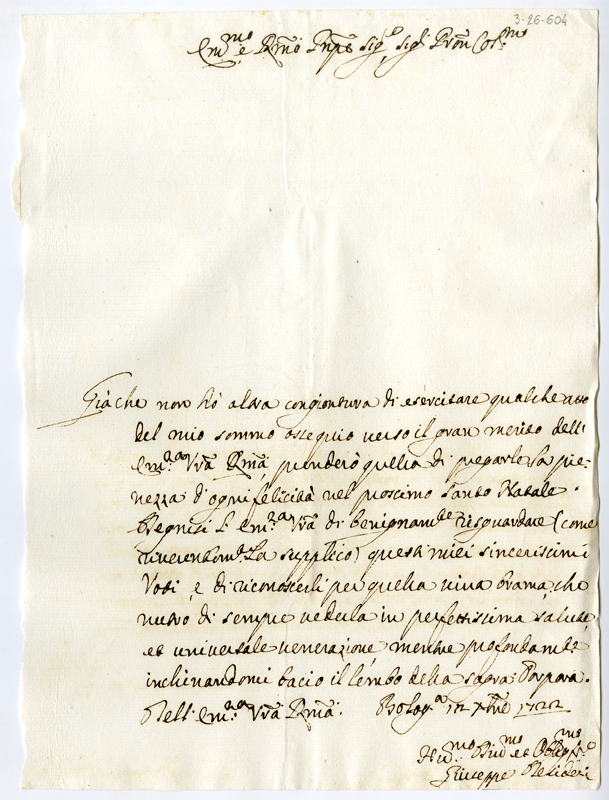 3-26-604
Em.mo e Rmo Pnpe Sig.e, Sig.e Pron Col.mo
Già che non hò altra congiontura di esercitare qualche atto
del mio sommo ossequio verso il gran merito dell'
Em.za Vra Rma, prenderò quella di pregarle la pie-
nezza d'ogni felicità nel prossimo Santo Natale.
Degnisi l'Em.za Vra di benignam.te risguardare (come
riverentem.te La supplico) questi miei sincerissimi
Voti, e di riconoscerli per quella viva brama, che
nutro di sempre vederla in perfettissima salute,
et universale venerazione mentre profondam.te
inchinandomi bacio il lembo della sagra Porpora.
Dell'Em.za Vra Rma. Bolog.a 12 Xbre 1722
Hu.mo Div.mo et Oblig.mo
Giuseppe